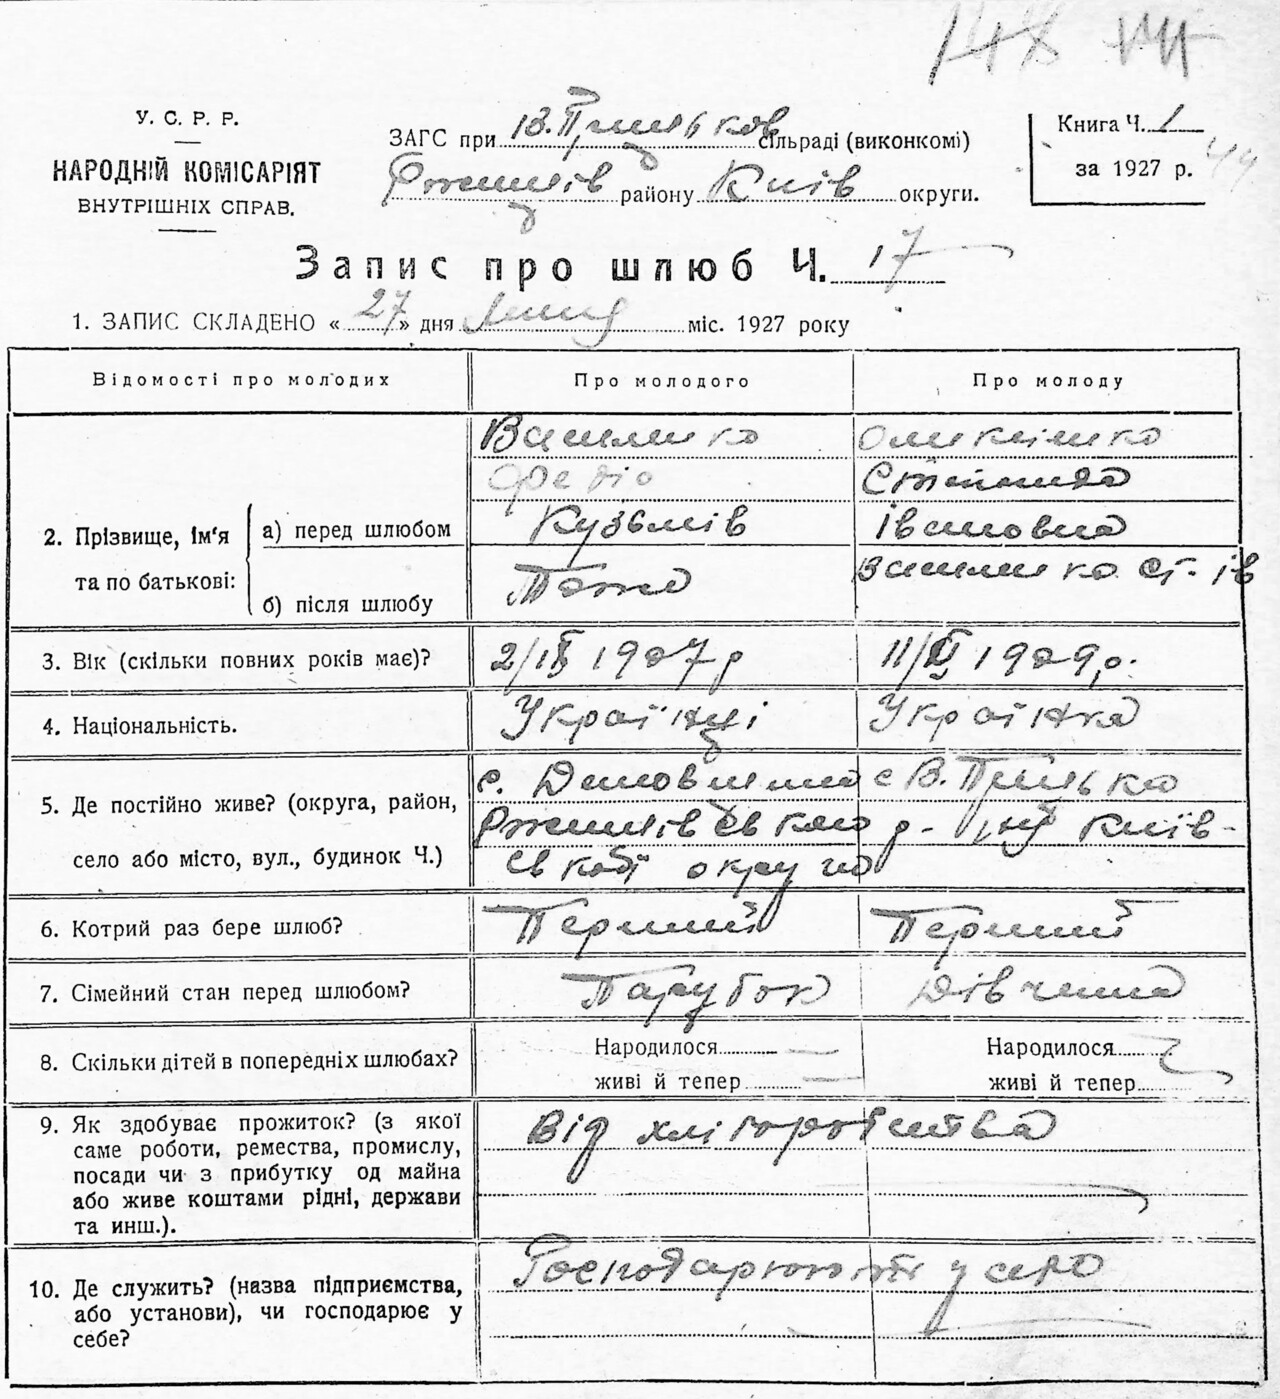 У. С. Р. Р.
НАРОДНІЙ КОМІСАРІЯТ
ВНУТРІШНІХ СПРАВ.
ЗАГС при В. сільраді (виконкомі)
Ржищів району Київ округи.
Книга Ч. 1
за 1927 р.
Запис про шлюб Ч. 17
1. ЗАПИС СКЛАДЕНО « 27 » дня міс. 1927 року
Відомості про молодих Про молодого Про молоду
2. Прізвище, ім'я та по батькові:
а) перед шлюбом
б) після шлюбу
Василенко
Федір
Кузьмів
Тоже
Степанида
Івановна
Василенко Ст. Ів
3. Вік (скільки повних років має)? 2/IX 1907 р 11/XI 1909 р.
4. Національність. Українці Українка
5. Де постійно живе? (округа, район,
село або місто, вул., будинок Ч.)
с. с В.
Ржищівськаго р-ну Київ-
ської округи
6. Котрий раз бере шлюб? Перший Перший
7. Сімейний стан перед шлюбом? Парубок Дівчина
8. Скільки дітей в попередніх шлюбах?
Народилося —
живі й тепер —
Народилося
живі й тепер
9. Як здобуває прожиток? (з якої
саме роботи, ремества, промислу,
посади чи з прибутку од майна
або живе коштами рідні, держави
та инш.).
Від хліборобства
10. Де служить? (назва підприємства,
або установи), чи господарює у
себе?
Господарюють у себе